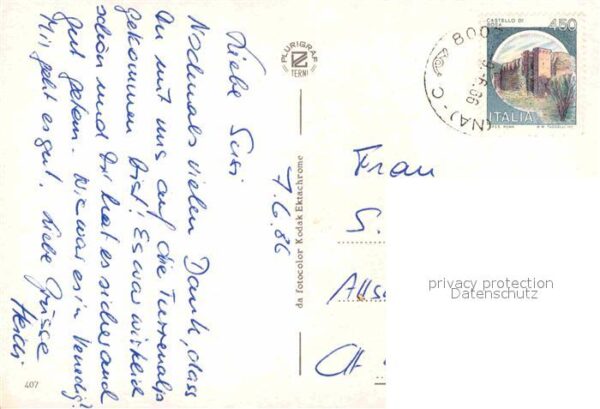 7.6.86
Liebe Susi
Nochmals vielen Dank, dass
Du mit uns auf die Turrenalp
gekommen bist! Es war wirklich
schön und Dir hat es sicher auch
gut getan. Wie war es in Venedig?
Mir geht es gut. Liebe Grüsse
Heidi
407
PLURIGRAF
TERNI
da fotocolor Kodak Ektachrome
CASTELLO DI
450
ITALIA
(NA)
Frau
S.
privacy protection
Datenschutz